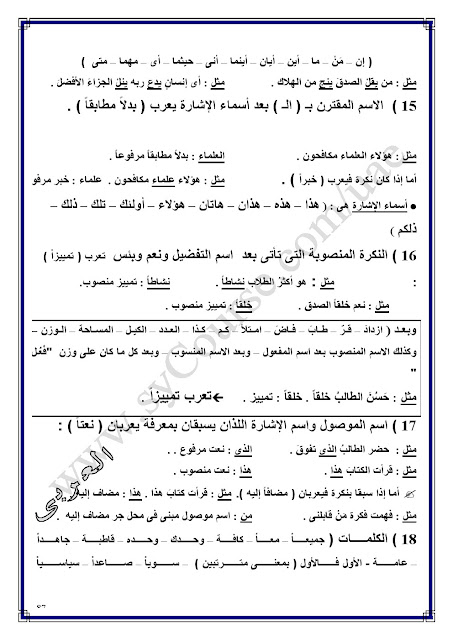 ( إن – مَنْ – ما – أين – أيان – أينما – أنى – حيثما – أى – مهما – متى )
مثل : من يقل الصدق ينج من الهلاك . مثل : أى إنسانٍ يدع ربه ينل الجزاءَ الأفضل .
15 ) الاسم المقترن بـ ( الـ ) بعد أسماء الإشارة يعرب ( بدلاً مطابقاً ) .
مثل : هؤلاء العلماء مكافحون . العلماء : بدلاً مطابقاً مرفوعاً .
أما إذا كان نكرة فيعرب ( خبراً ) . مثل : هؤلاء علماء مكافحون . علماء : خبر مرفو
● أسماء الإشارة هى : ( هذا – هذه – هذان – هاتان – هؤلاء – أولئك – تلك – ذلك –
ذلكم )
16 ) النكرة المنصوبة التى تأتى بعد اسم التفضيل ونعم وبئس تعرب ( تمييزاً )
: مثل : هو أكثرُ الطلاب نشاطاً . نشاطاً : تمييز منصوب .
مثل : نعم خلقاً الصدق . خلقاً : تمييز منصوب .
وبعد ( ازداد – قرّ – طاب – فاض – امتلأ – كم – كذا – العدد – الكيل – المساحة – الوزن –
وكذلك الاسم المنصوب بعد اسم المفعول – وبعد الاسم المنسوب – وبعد كل ما كان على وزن "فَعُل
"
مثل : حَسُنَ الطالبُ خلقاً . خلقاً : تمييز . ←تعرب تمييزاً .
17 ) اسم الموصول واسم الإشارة اللذان يسبقان بمعرفة يعربان ( نعتاً ) :
مثل : حضر الطالبُ الذي تفوق . الذي : نعت مرفوع . .
مثل : قرأت الكتابَ هذا . هذا : نعت منصوب .
أما إذا سبقا بنكرة فيعربان ( مضافاً إليه ). مثل : قرأت كتابَ هذا . هذا : مضاف إليه
مثل : فهمت فكرة مَنْ قابلنى . من : اسم موصول مبنى فى محل جر مضاف إليه .
18 ) الكلمات ( جميعاً – معاً – كافة – وحدك – وحده – قاطبة – جاهداً
– عامة – الأول فالأول ( بمعنى مترتبين ) – سوياً – صاعداً – سياسياً
www.syCourse.com/uae
العربي